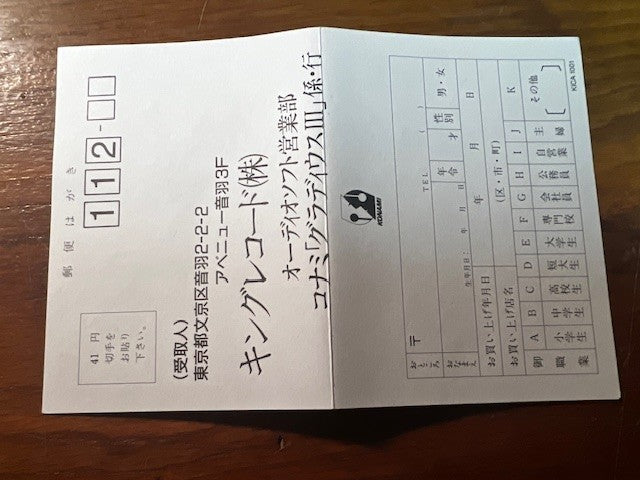 郵便はがき
112-
41円
切手を
お貼り
下さい。
(受取人)
東京都文京区音羽2-2-2
アベニュー音羽3F
キングレコード(株)
オーディオソフト営業部
コナミ「グラディウスIII」係・行
KONAMI
おところ 〒
TEL ( )
おなまえ
生年月日: 年 月 日
年令 才
性別 男・女
お買い上げ年月日 年 月 日
お買い上げ店名 (区・市・町)
御職業
A 小学生
B 中学生
C 高校生
D 短大生
E 大学生
F 専門校
G 会社員
H 公務員
I 自営業
J 主婦
K その他[ ]
KICA 1001